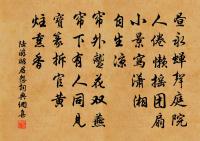 晝永蟬聲庭院
人倦懶搖團扇
小景寫瀟湘
自生涼
簾外蹙花雙燕
簾下有人同見
寶篆拆官黃
炷熏香
陸游昭君怨詞典網集